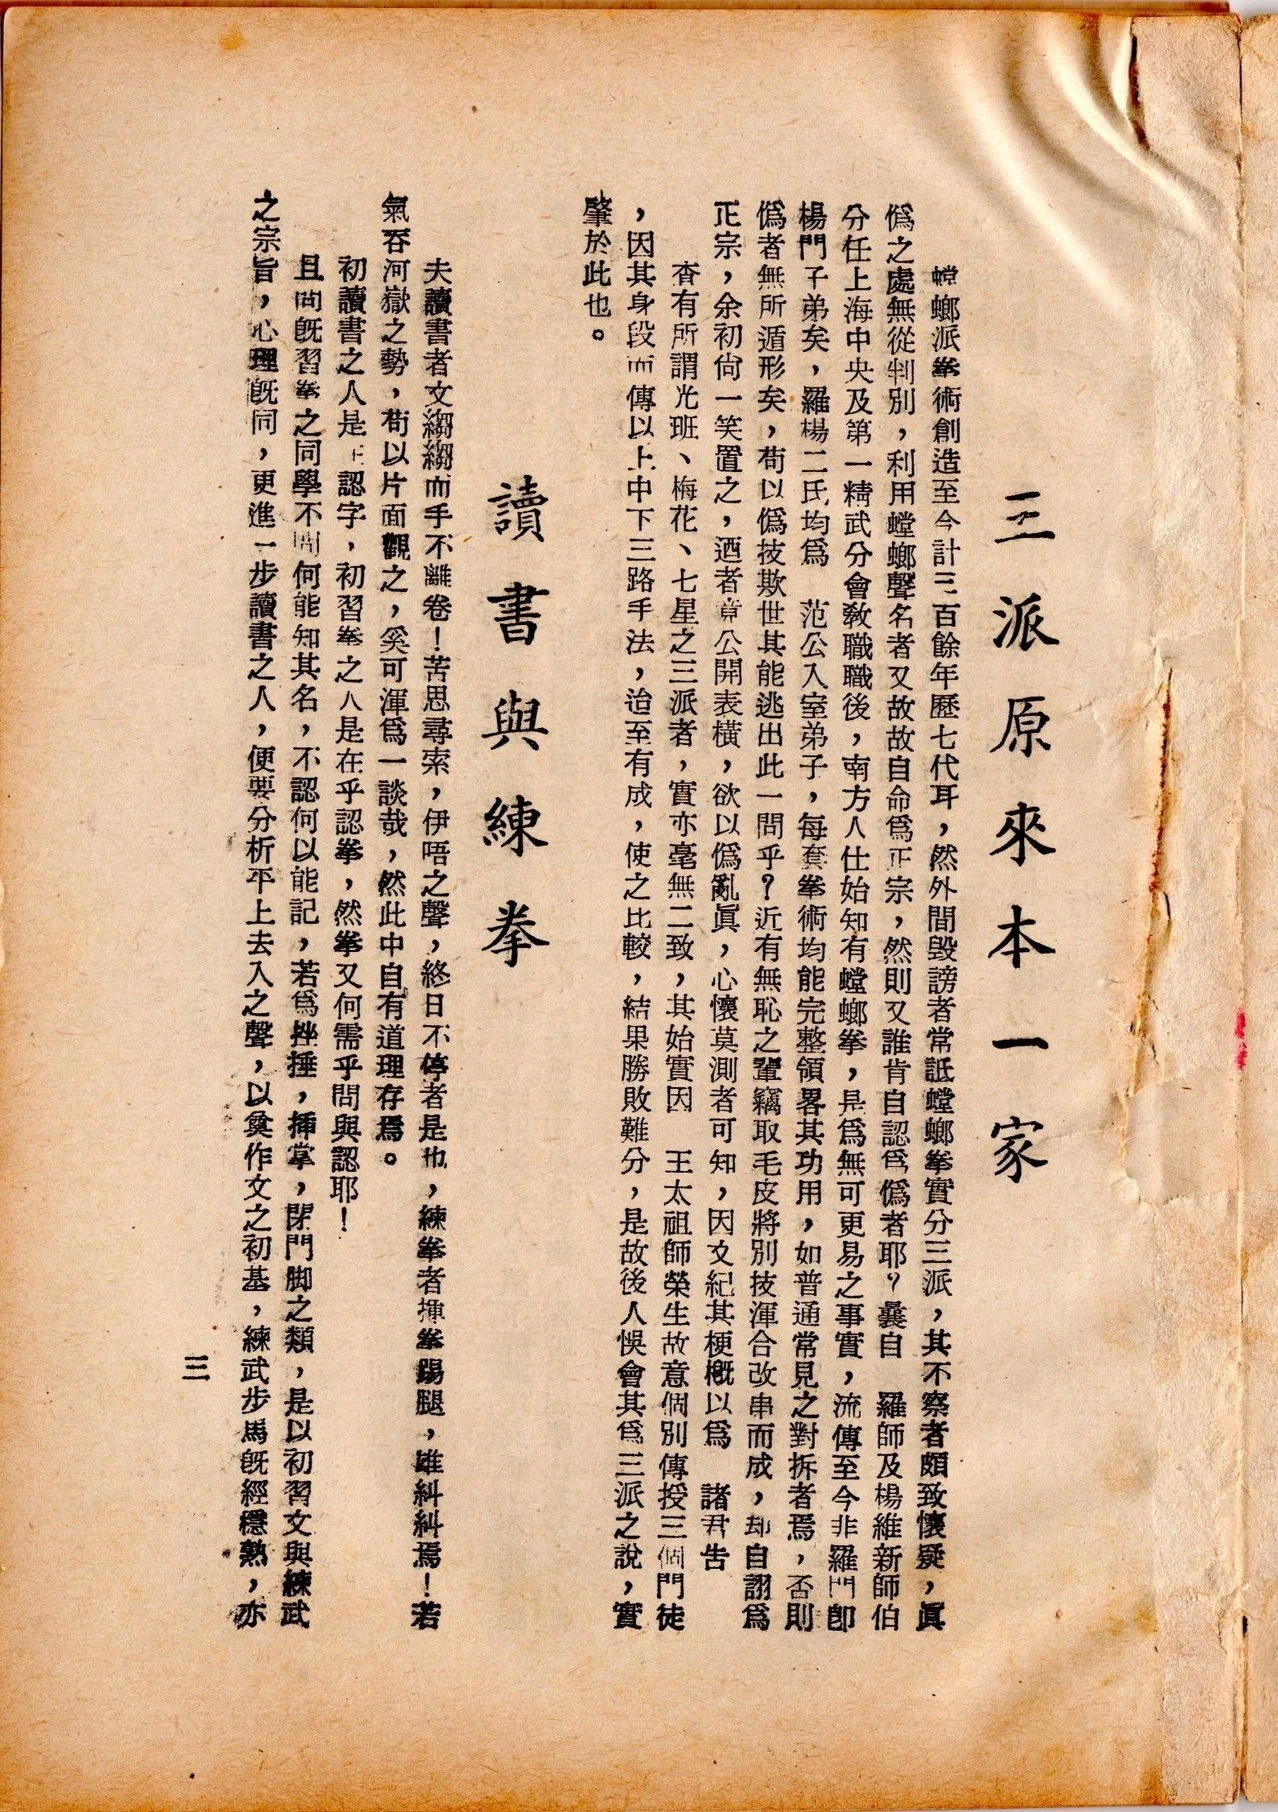 三派原來本一家
螳螂派拳術創造至今計三百餘年歷七代耳，然外間毀謗者常詆螳螂拳實分三派，其不察者頗致懷疑，眞
僞之處無從判別，利用螳螂聲名者又故故自命爲正宗，然則又誰肯自認爲僞者耶？曩自　羅師及楊維新師伯
分任上海中央及第一精武分會敎職職後，南方人仕始知有螳螂拳，是爲無可更易之事實，流傳至今非羅門卽
楊門子弟矣，羅楊二氏均爲　范公入室弟子，每套拳術均能完整領畧其功用，如普通常見之對拆者焉，否則
僞者無所遁形矣，苟以僞技欺世其能逃出此一問乎？近有無恥之輩竊取毛皮將別技渾合改串而成，却自詡爲
正宗，余初尙一笑置之，迺者竟公開表橫，欲以僞亂眞，心懷莫測者可知，因文紀其梗概以爲　諸君告
査有所謂光班、梅花、七星之三派者，實亦毫無二致，其始實因　王太祖師榮生故意個別傳授三個門徒
，因其身段而傳以上中下三路手法，治至有成，使之比較，結果勝敗難分，是故後人悞會其爲三派之說，實
肇於此也。
讀書與練拳
夫讀書者文縐縐而手不離卷！苦思尋索，伊唔之聲，終日不停者是也，練拳者揮拳踢腿，雄糾糾焉！若
氣吞河嶽之勢，苟以片面觀之，奚可渾爲一談哉，然此中自有道理存焉。
初讀書之人是　認字，初習拳之人是在乎認拳，然拳又何需乎問與認耶！
且問旣習拳之同學不問何能知其名，不認何以能記，若爲挫捶，揷掌，閉門脚之類，是以初習文與練武
之宗旨，心理旣同，更進一步讀書之人，便要分析平上去入之聲，以奠作文之初基，練武步馬旣經穩熟，亦
三